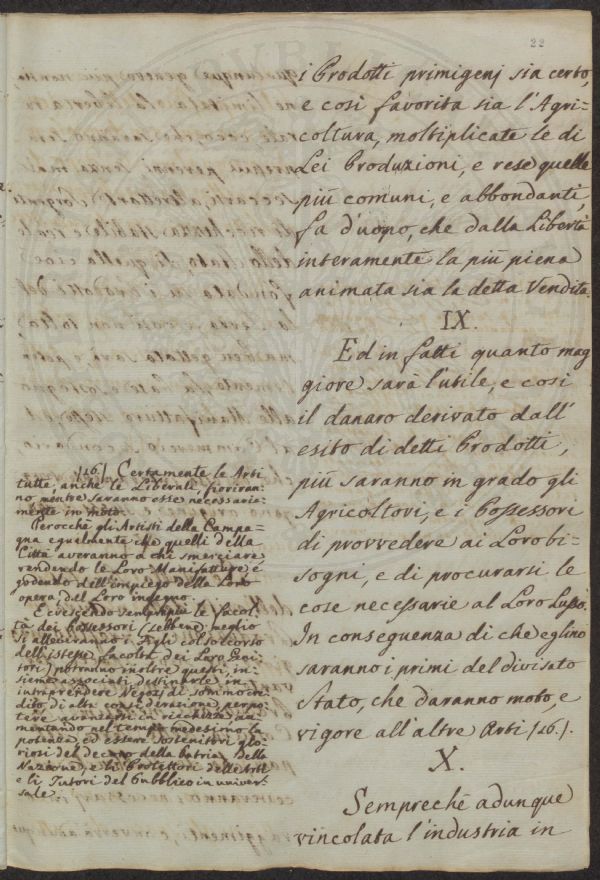 22
i Prodotti primigenj sia certo,
e così favorita sia l'Agri=
coltura, moltiplicate le di
Lei Produzioni, e rese quelle
più comuni, e abbondanti,
fa d'uopo, che dalla Libertà
interamente la più piena
animata sia la detta Vendita.
IX.
Ed in fatti quanto mag
giore sarà l'utile, e così
il danaro derivato dall'
esito di detti Prodotti,
più saranno in grado gli
Agricoltori, e i Possessori
di provvedere ai Loro bi=
sogni, e di procurarsi le
cose necessarie al Loro Lusso.
In conseguenza di che eglino
saranno i primi del divisato
Stato, che daranno moto, e
vigore all'altre Arti (26.).
X.
Sempreché adunque
vincolata l'industria in
(26.) Certamente le Arti
tutte, anche le Liberali, fioriran=
no, mentre saranno esse necessaria=
mente in moto.
Perocchè gli Artisti della Campa=
gna egualmente che quelli della
Città averanno a chi smerciare
vendendo le Loro Manifatture, e
godendo dell'impiego della Loro
opera, del Loro ingegno.
E crescendo sempre più le facol
tà dei Possessori (sebbene meglio
si alleveranno i figli col soccorso
dell'istesse facoltà dei Loro Geni=
tori) potranno inoltre questi in=
sieme associati destinarle in
intraprendere Negozj di sommo cre
dito, di alta considerazione, per po=
tere avanzarsi in ricchezze, au=
mentando nel tempo medesimo la
potenza, ed essere sostenitori glo=
riosi del decoro della Patria, della
Nazione, e li Protettori delle Arti
e li Tutori del Pubblico in univer=
sale.